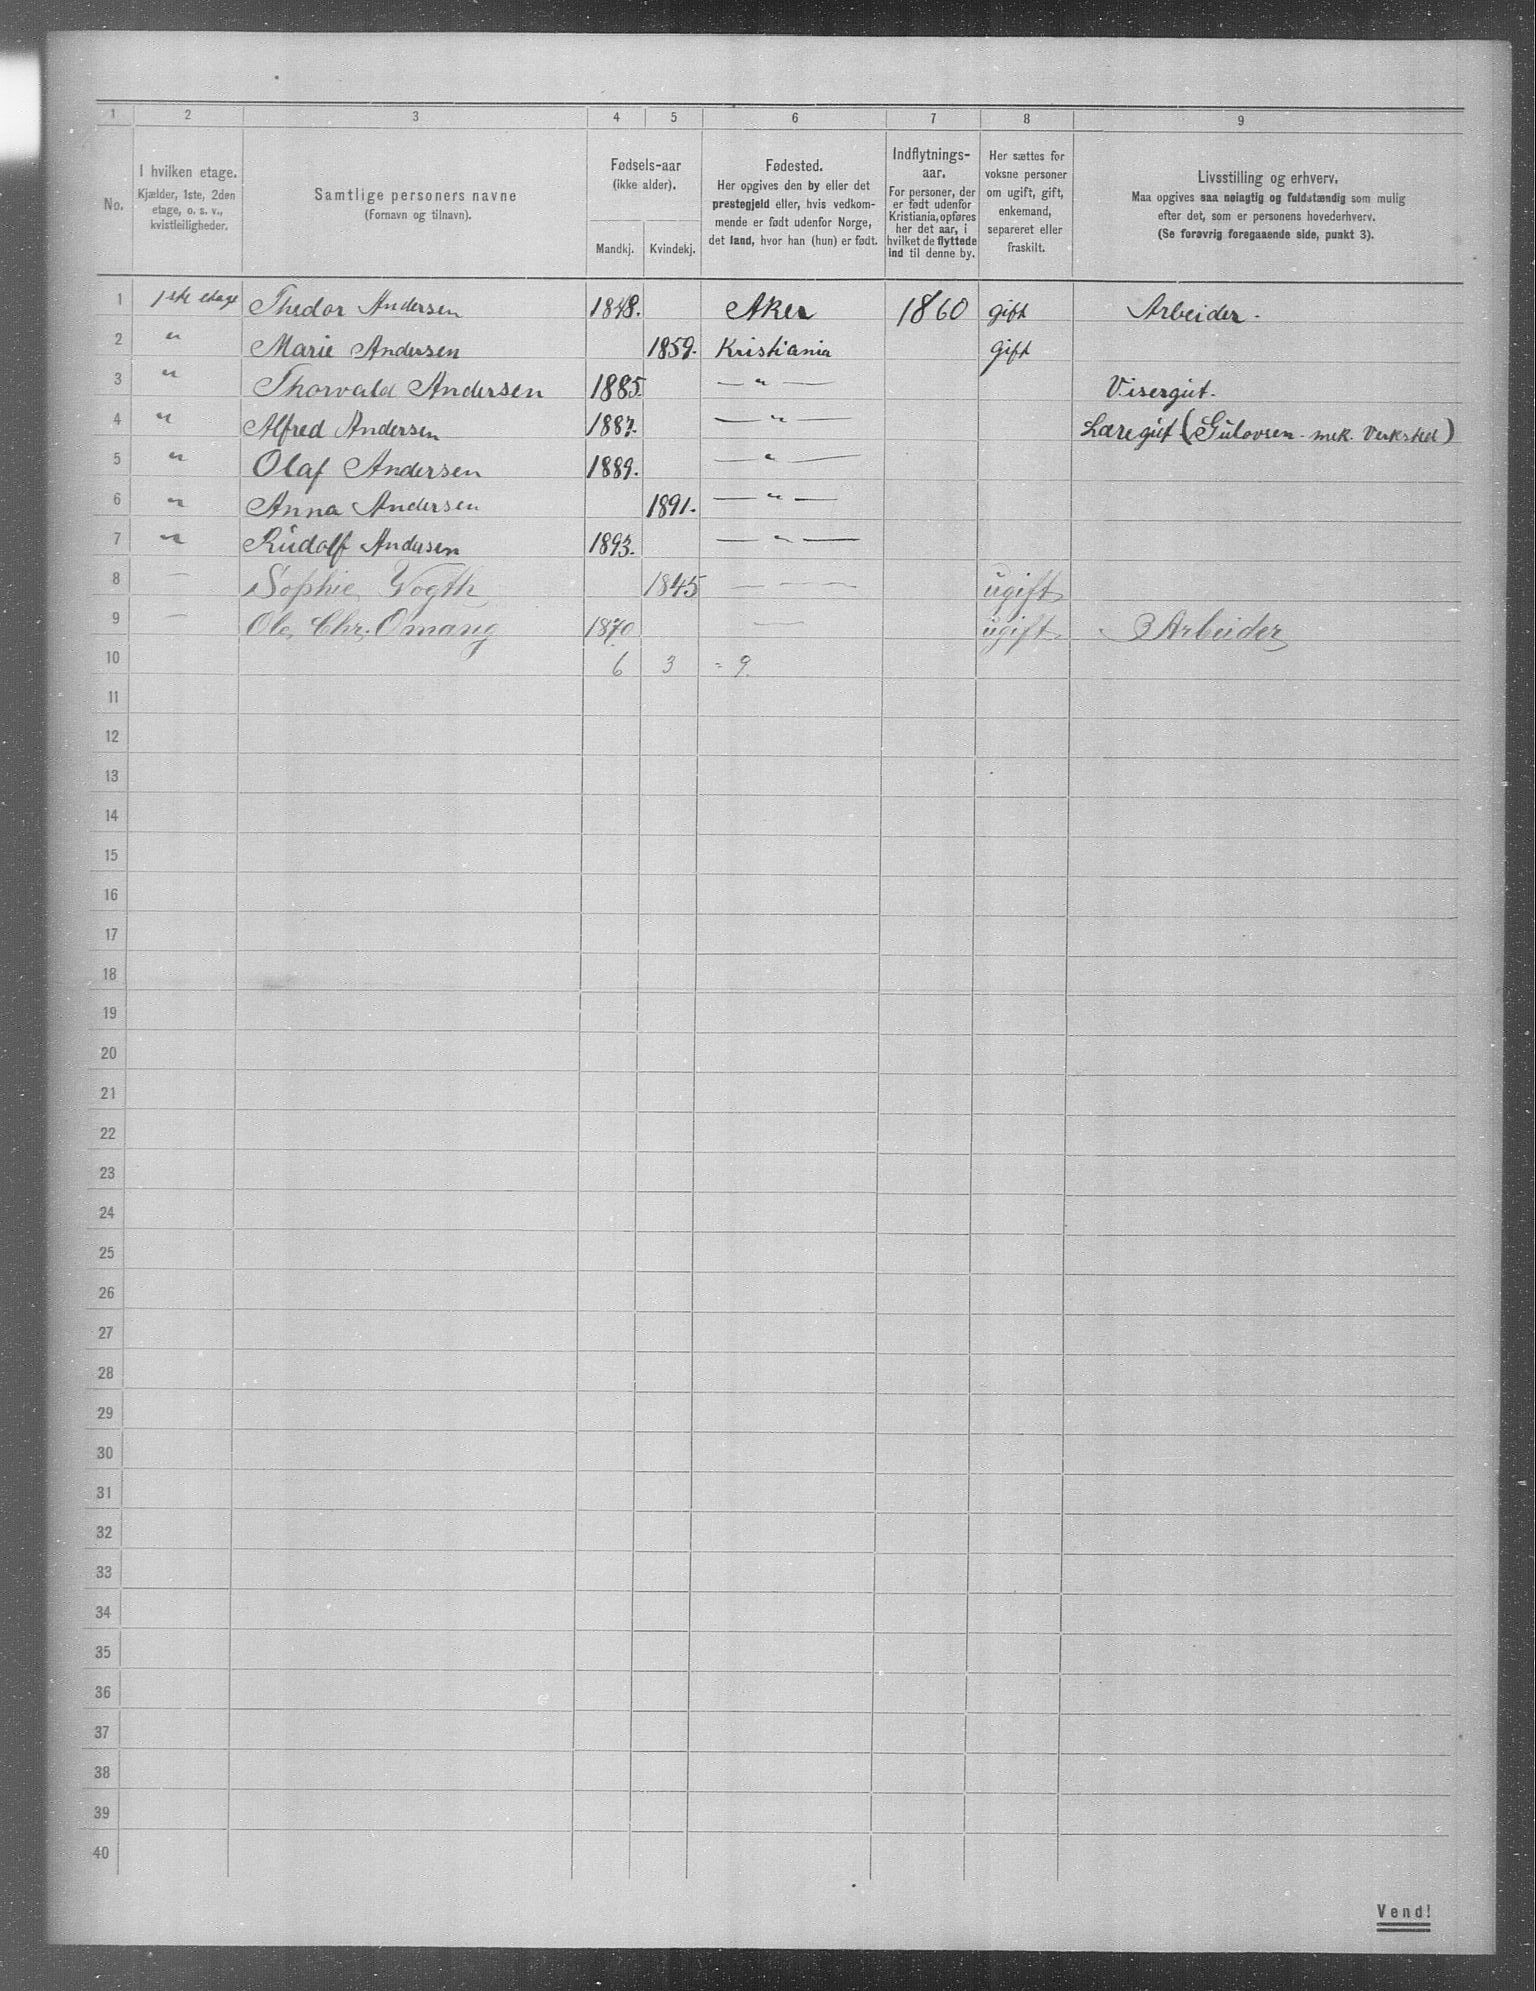 1 2 3 4 5 6 7 8 9
No.
I hvilken etage.
Kjælder, 1ste, 2den
etage, o. s. v.,
kvistleiligheder.
Samtlige personers navne
(Fornavn og tilnavn).
Fødsels-aar
(ikke alder).
Mandkj. Kvindekj.
Fødested.
Her opgives den by eller det
prestegjeld eller, hvis vedkom-
mende er født udenfor Norge,
det land, hvor han (hun) er født.
Indflytnings-
aar.
For personer, der
er født udenfor
Kristiania, opføres
her det aar, i
hvilket de flyttede
ind til denne by.
Her sættes for
voksne personer
om ugift, gift,
enkemand,
separeret eller
fraskilt.
Livsstilling og erhverv.
Maa opgives saa nøiagtig og fuldstændig som mulig
efter det, som er personens hovederhverv.
(Se forøvrig foregaaende side, punkt 3).
1 1ste etage Thedor Andersen 1848. Aker 1860 gift Arbeider.
2 " Marie Andersen 1859. Kristiania gift
3 " Thorvald Andersen 1885. — " — Visergut.
4 " Alfred Andersen 1887. — " — Læregut (Gulovsen mek. Verksted)
5 " Olaf Andersen 1889. — " —
6 " Anna Andersen 1891. — " —
7 " Rudolf Andersen 1893. — " —
8 — Sophie Vogth 1845 — — — ugift
9 — Ole Chr. Omang 1870 — ugift Arbeider
10 6 3 = 9.
11
12
13
14
15
16
17
18
19
20
21
22
23
24
25
26
27
28
29
30
31
32
33
34
35
36
37
38
39
40
Vend!